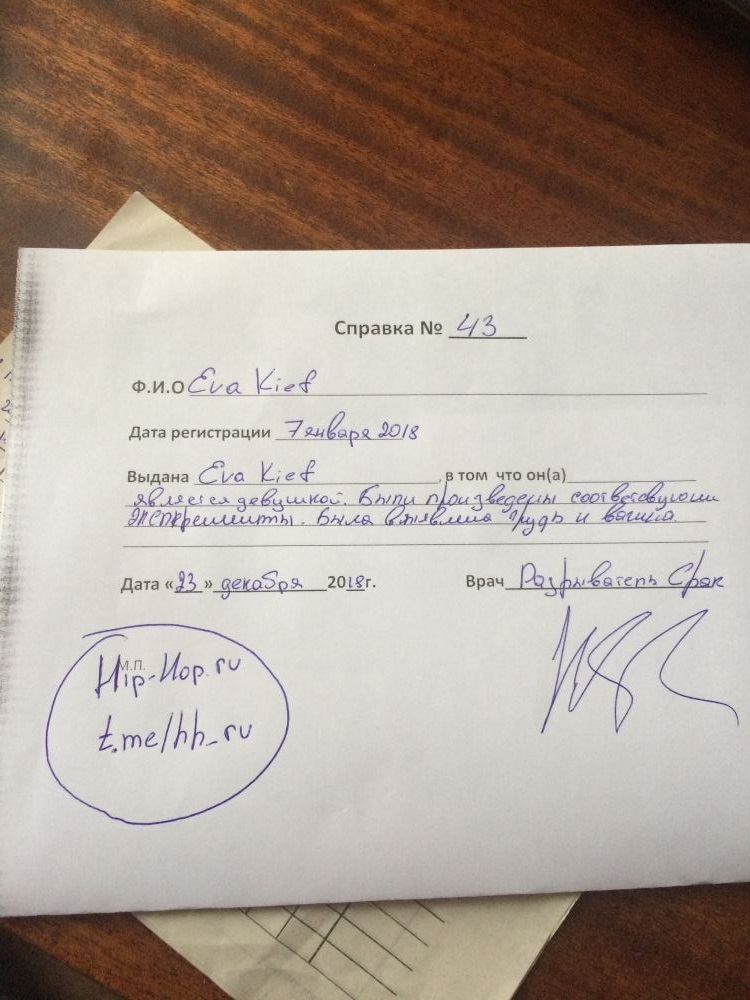 Справка № 43
Ф.И.О Eva Kief
Дата регистрации 7 января 2018
Выдана Eva Kief, в том что он(а)
является девушкой. Были произведены соответсвующии
Эксперименты. Была выявлина грудь и вагина.
Дата «23» декабря 2018г.
Врач Разрыватель Срак
М.П.
Hip-Hop.ru
t.me/hh_ru